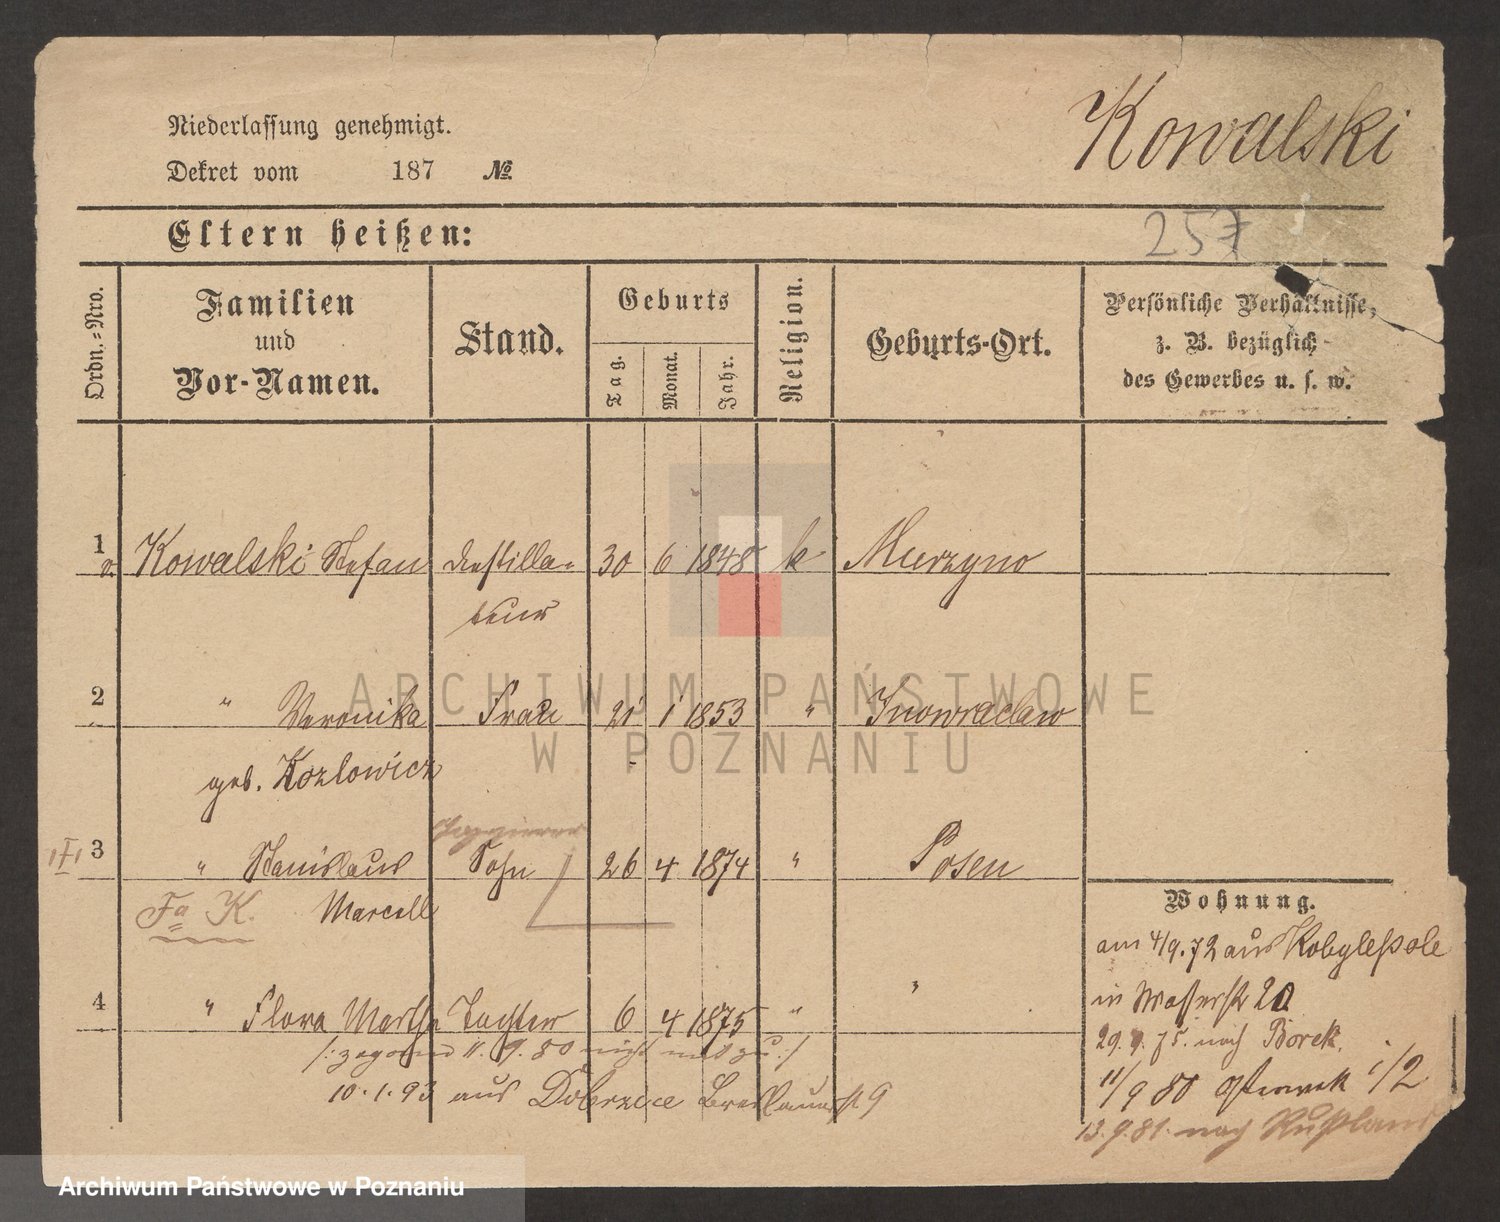 Kowalski
Niederlassung genehmigt.
Dekret vom 187 No.
Eltern heißen:
257
Ordn.-Nro.
Familien
und
Vor-Namen.
Stand.
Geburts
Tag.
Monat.
Jahr.
Religion.
Geburts-Ort.
Persönliche Verhältnisse,
z. B. bezüglich
des Gewerbes u. s. w.
1 Kowalski Stefan Destilla- 30 6 1848 k Murzyno
teur
2 " Veronika Frau 21 1 1853 " Inowraclaw
geb. Kozlowicz
3 " Stanislaus Sohn 26 4 1874 " Posen
Fa K. Marcell
4 " Flora Martha Tochter 6 4 1875 " "
11. 9. 80 nicht mit zu :/
10. 1. 93 aus Dobrzyce Breslauerst 9
Wohnung.
am 4/9. 72 aus Kobylepole
in Wasserstr 20
29. 9. 75. nach Borek.
11/9 80 Ostrowek 1/2
13. 9. 81. nach Rußland
ARCHIWUM PAŃSTWOWE
W POZNANIU
Archiwum Państwowe w Poznaniu